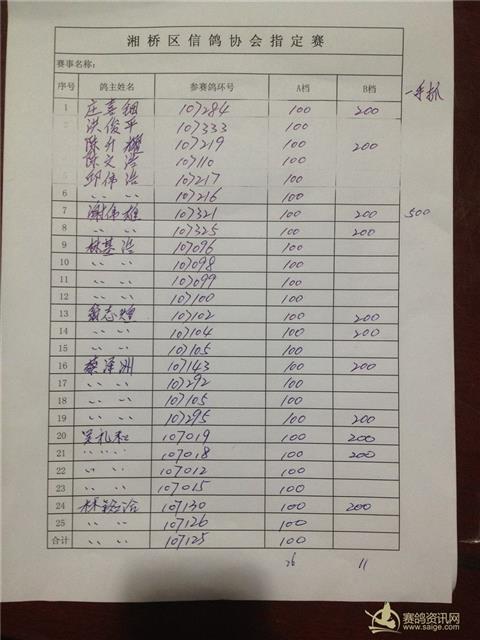 湘桥区信鸽协会指定赛
赛事名称:
序号 鸽主姓名 参赛鸽环号 A档 B档 一手抓
1 庄喜钿 107284 100 200
洪俊平 107333 100
陈升耀 107219 100 200
陈文浩 107110 100
5 邱伟浩 107217 100
6 〃 〃 107216 100
7 谢伟雄 107321 100 200 500
8 〃 〃 107325 100 200
9 林基浩 107096 100
10 〃 〃 107098 100
11 〃 〃 107099 100
12 〃 〃 107100 100
13 志煌 107102 100 200
14 〃 〃 107104 100 200
15 〃 〃 107105 100
16 蔡泽洲 107143 100 200
17 〃 〃 107292 100
18 〃 〃 107105 100
19 〃 〃 107295 100 200
20 吴礼和 107019 100 200
21 〃 〃 〃 107018 100 200
22 〃 〃 107012 100
23 〃 〃 107015 100
24 林 107130 100 200
25 〃 〃 107126 100
合计 〃 〃 107125 100
26 11
赛鸽资讯网
www.saige.com